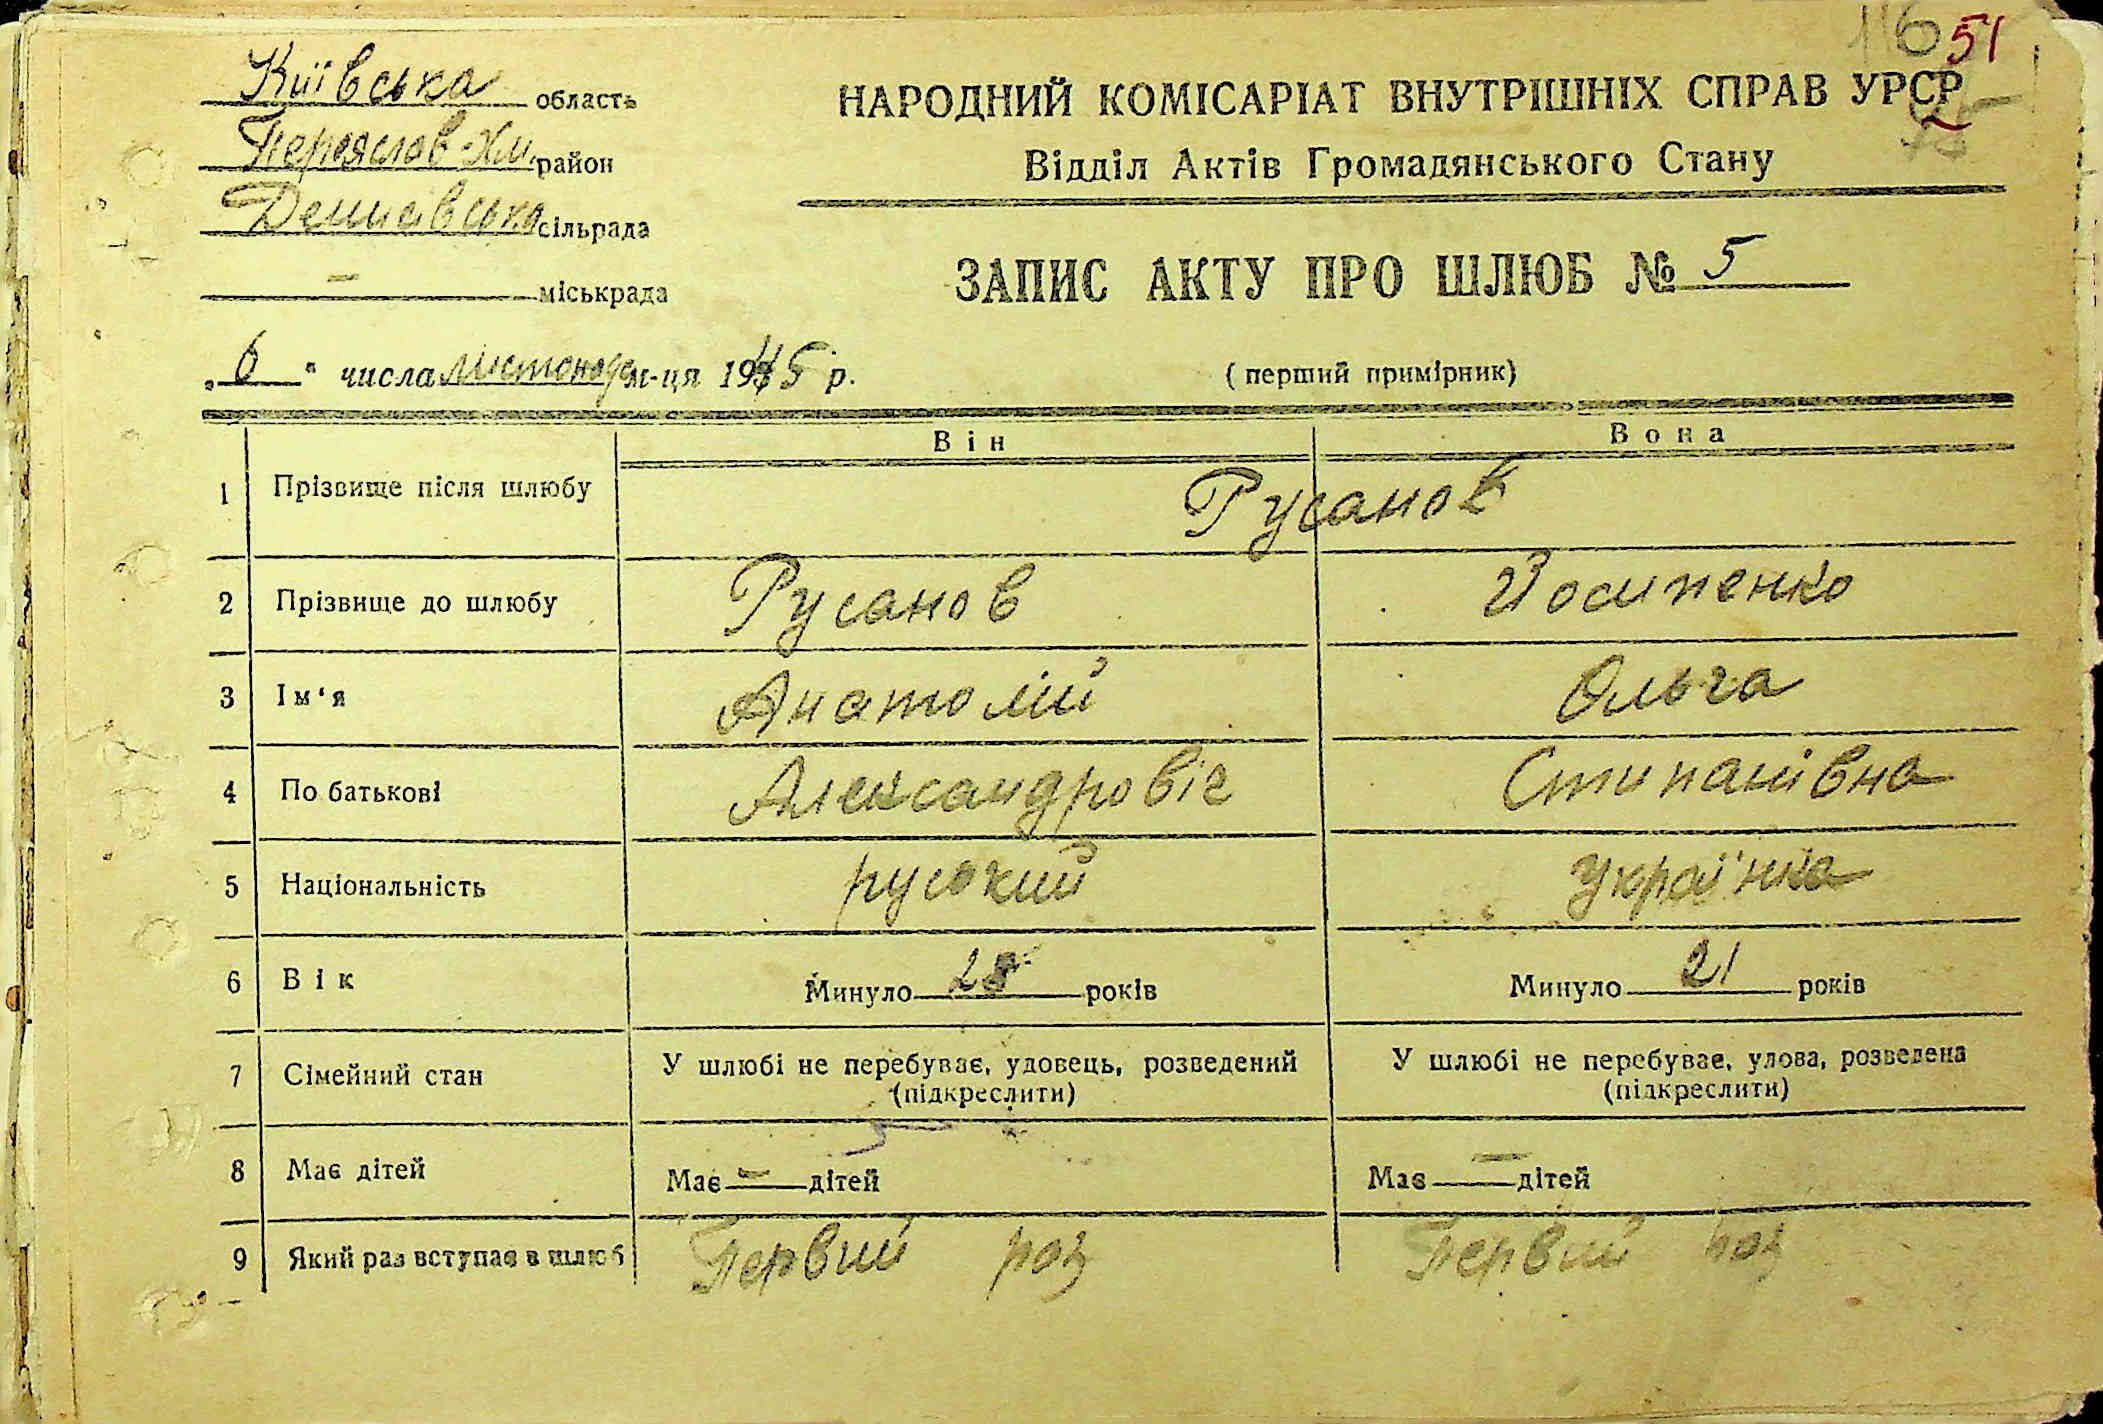 116 51
Київська область
НАРОДНИЙ КОМІСАРІАТ ВНУТРІШНІХ СПРАВ УРСР
Переяслав-Хм. район
Відділ Актів Громадянського Стану
Денисівська сільрада
ЗАПИС АКТУ ПРО ШЛЮБ № 5
— міськрада
„6" числа листопада м-ця 1945 р.
(перший примірник)
Він Вона
1 Прізвище після шлюбу Русанов
2 Прізвище до шлюбу Русанов Йосипенко
3 Ім‘я Анатолій Ольга
4 По батькові Александровіч Стипанівна
5 Національність руський Українка
6 Вік Минуло 28 років Минуло 21 років
7 Сімейний стан У шлюбі не перебуває, удовець, розведений У шлюбі не перебуває, удова, розведена
(підкреслити) (підкреслити)
8 Має дітей Має — дітей Має — дітей
9 Який раз вступає в шлюб Первий раз Первий раз